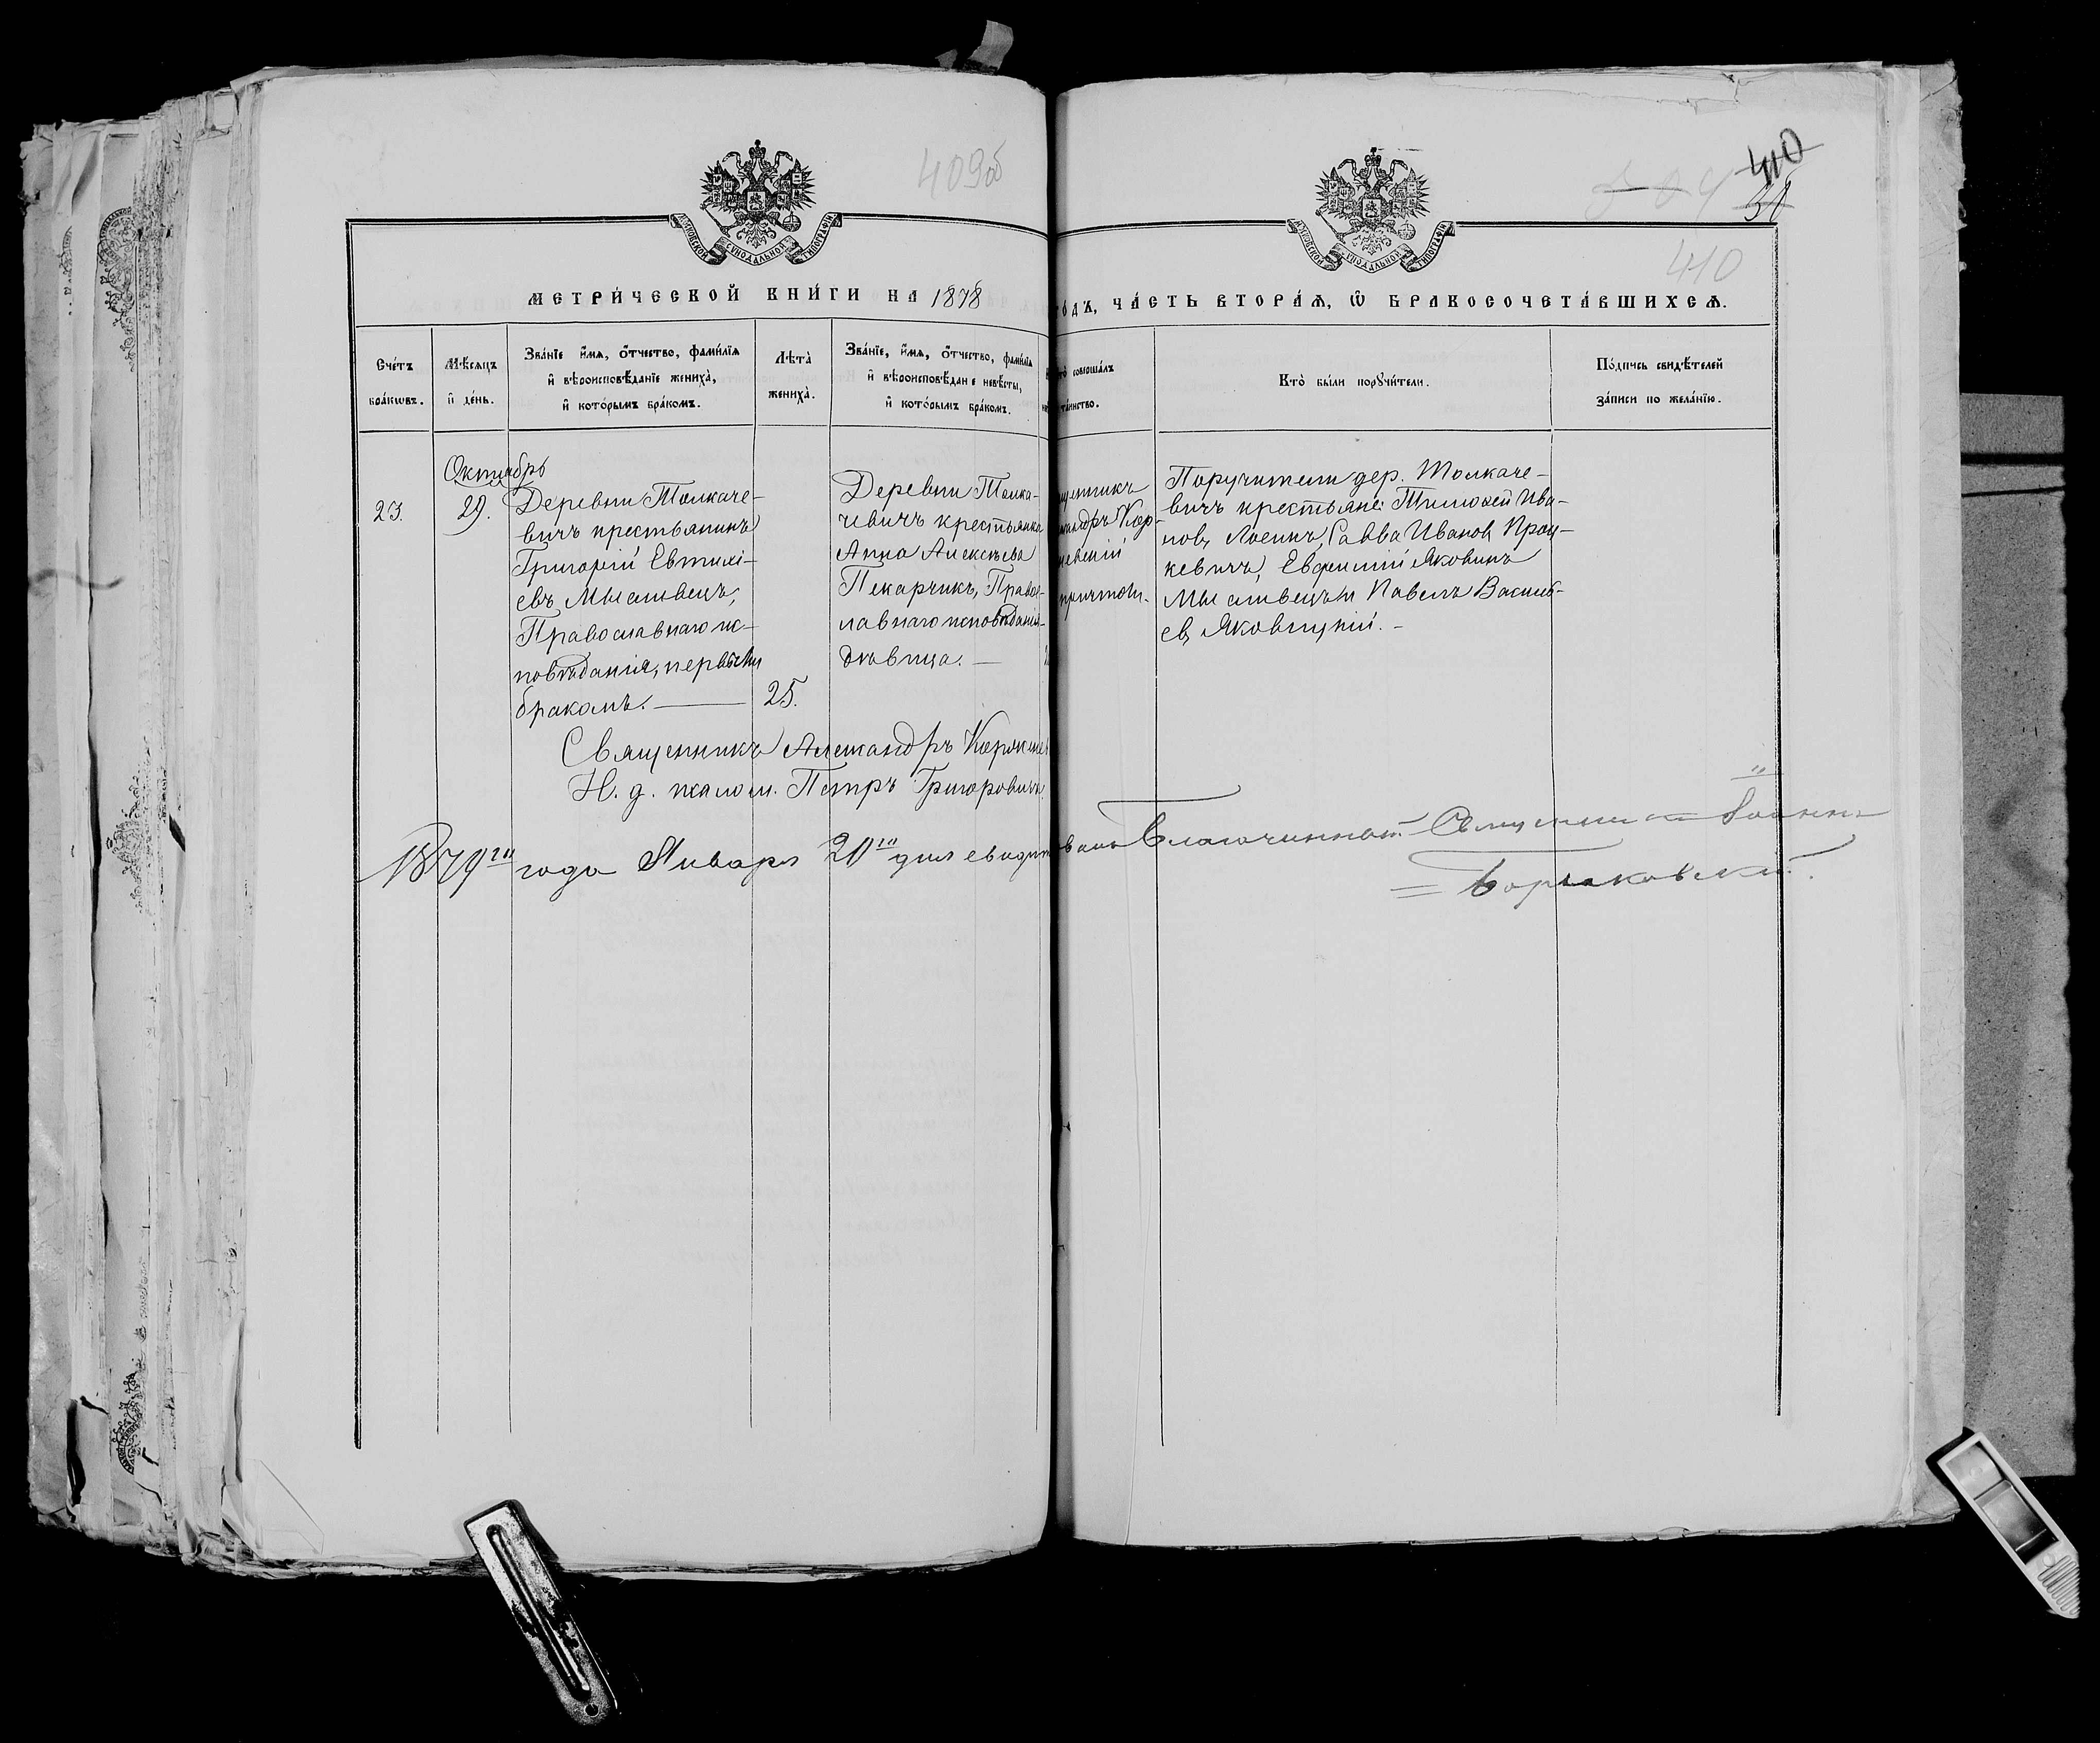 409об
410
410
МОСКОВСКОЙ СѴНОДАЛЬНОЙ ТИПОГРАФІИ
МОСКОВСКОЙ СѴНОДАЛЬНОЙ ТИПОГРАФІИ
МЕТРИ́ЧЕСКОЙ КНИ́ГИ НА 1878
ГО́ДЪ, ЧА́СТЬ ВТОРА́Ѧ, Ѡ БРАКОСОЧЕТА́ВШИХСѦ.
Сче́тъ
бра́кωвъ.
Мѣ́сѧцъ
и҆ де́нь.
Зва́нїе и҆́мѧ, ѻ҆́тчество, фами́лїѧ
и҆ вѣроисповѣ́данїе жениха̀,
и҆ кото́рымъ бра́комъ.
Лѣта̀
жениха̀.
Зва́нїе, и҆́мѧ, ѻ҆́тчество, фами́лїѧ
и҆ вѣроисповѣ́дан е невѣ́сты,
и҆ кото́рымъ бра́комъ.
то̀ соверша́лъ
та́инство.
Кто̀ бы́ли порꙋчи́тели.
По́дпись свидѣ́телей
за́писи по жела́нїю.
Октябрь
23.
29.
Деревни Толкаче-
вичъ крестьянинъ
Григорій Евтихі-
евъ Мысливецъ,
Православнаго ис-
повѣданія, первымъ
бракомъ.
25.
Деревни Толка-
чевичъ крестьянка
Анна Алексѣева
Пекарчикъ, Право-
лавнаго исповѣданія
дѣвица.
щенникъ
андръ Кор-
невскій
причтом.
Поручители дер. Толкаче-
вичъ крестьяне: Тимоѳей Ива-
новъ Лосикъ, Савва Ивановъ Проц-
кевичъ, Евфимій Яковинъ
Мысливецъ и Павелъ Василь-
евъ Яковицкій.
Священникъ Александръ
Н. д. псалом. Петръ Григоровичъ
1879го года Января 20го дня свидѣт
Благочинный Священникъ